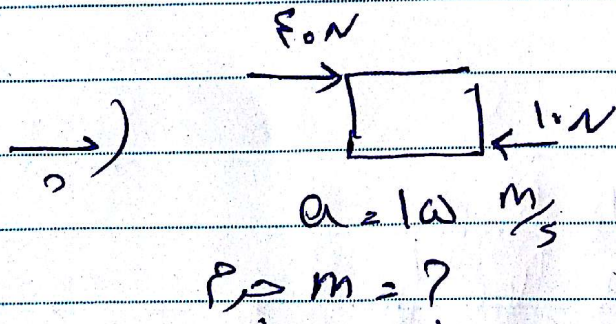 ۴۰N
۱۰N
a = ۱۵ m/s
جرم m = ?